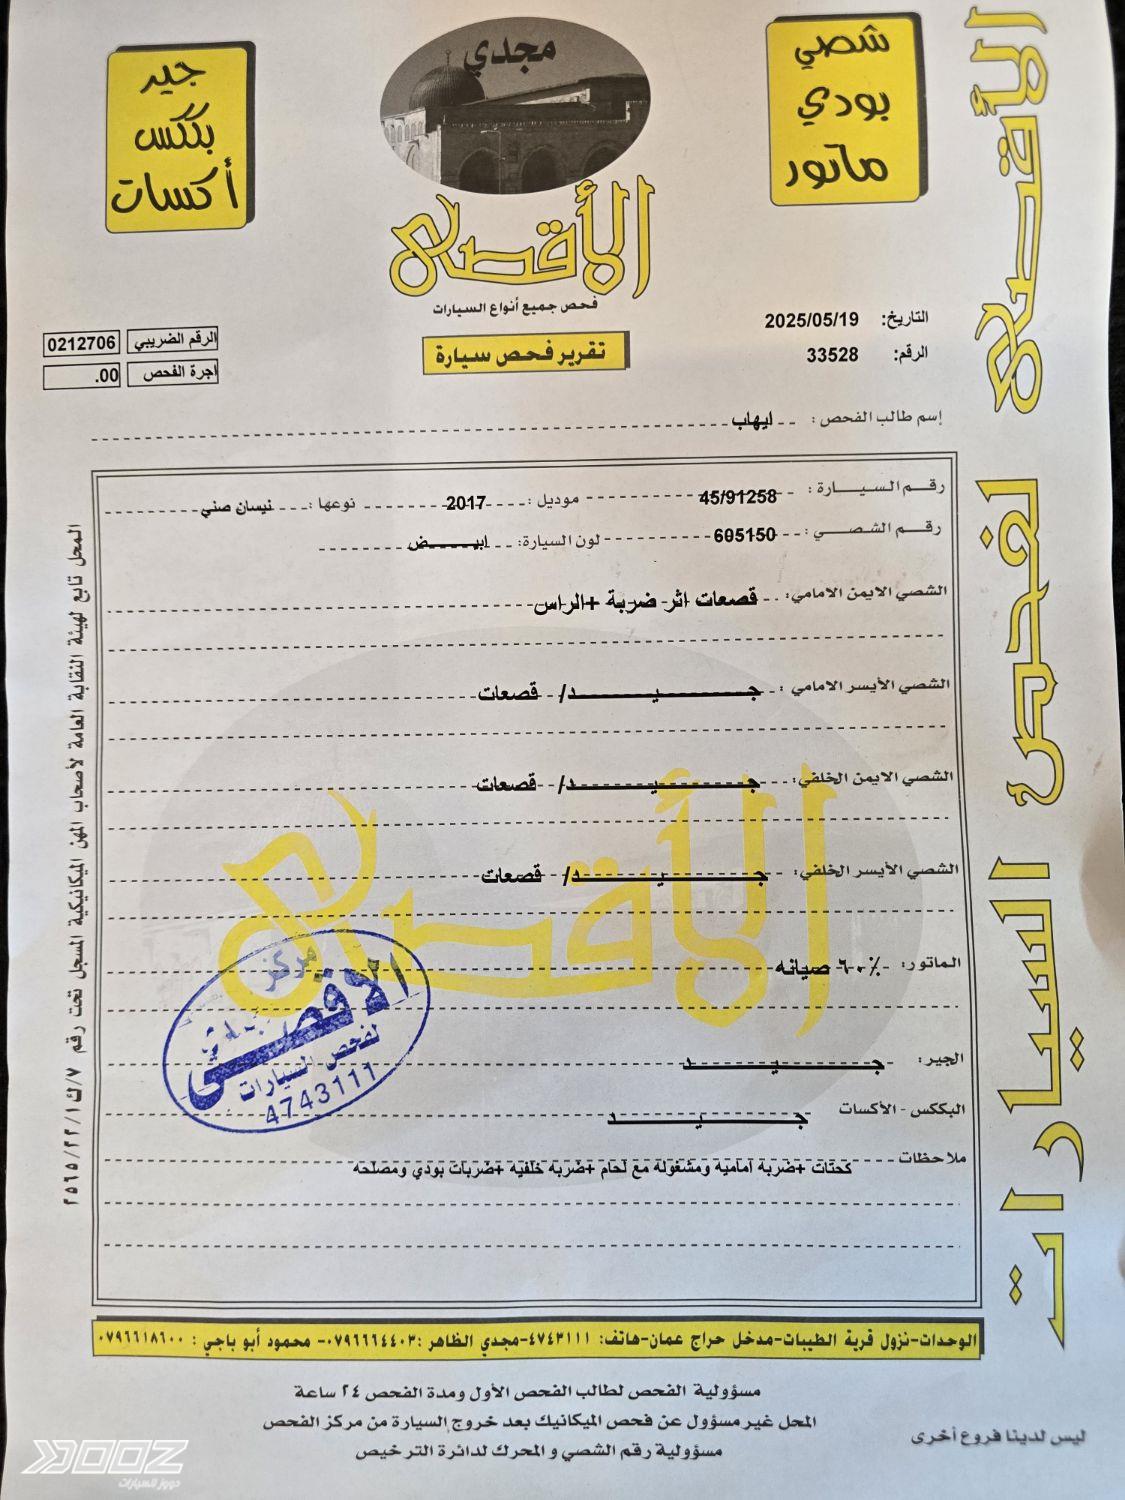 شصي
بودي
ماتور
مجدي
جير
بككس
أكسات
الأقصى
فحص جميع أنواع السيارات
تقرير فحص سيارة
التاريخ: 2025/05/19
الرقم: 33528
الرقم الضريبي 0212706
اجرة الفحص .00
إسم طالب الفحص: ايهاب
رقم السيارة: 45/91258 موديل: 2017 نوعها: نيسان صني
رقم الشصي: 605150 لون السيارة: ابيض
الشصي الايمن الامامي: قصعات اثر ضربة +الراس
الشصي الأيسر الامامي: جيد/ قصعات
الشصي الايمن الخلفي: جيد/ قصعات
الشصي الأيسر الخلفي: جيد/ قصعات
الأقصى
الماتور: ٦٠٪ صيانه
الجير: جيد
البككس - الأكسات جيد
ملاحظات كحتات +ضربة امامية ومشغوله مع لحام +ضربة خلفيه +ضربات بودي ومصلحه
مركز
الاقصى
لفحص السيارات
4743111
الوحدات-نزول قرية الطيبات-مدخل حراج عمان-هاتف: ٤٧٤٣١١١-مجدي الظاهر: ٠٧٩٦٦٦٤٤٠٣- محمود أبو باجي: ٠٧٩٦٦١٨٦٠٠
مسؤولية الفحص لطالب الفحص الأول ومدة الفحص ٢٤ ساعة
المحل غير مسؤول عن فحص الميكانيك بعد خروج السيارة من مركز الفحص
مسؤولية رقم الشصي و المحرك لدائرة الترخيص
ليس لدينا فروع أخرى
الأقصى لفحص السيارات
المحل تابع لهيئة النقابة العامة لأصحاب المهن الميكانيكية المسجل تحت رقم ٧/ك١/٢٢/٢٥٦٥
DOOZ
دووز للسيارات